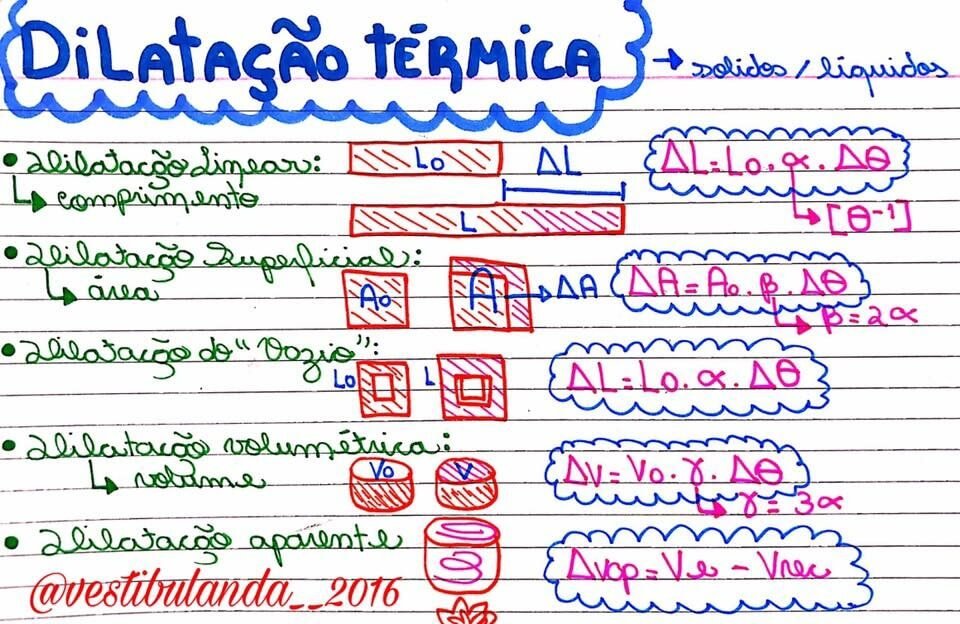 DiLatação TÉRMiCA → sólidos / líquidos
• Dilatação Linear: Lo ΔL ΔL = Lo . α . ΔΘ
↳ comprimento L ↳ [Θ⁻¹]
• Dilatação Superficial: Ao A → ΔA ΔA = Ao . β . ΔΘ
↳ área ↳ β = 2α
• Dilatação do "Vazio": Lo L ΔL = Lo . α . ΔΘ
• Dilatação volumétrica: Vo V ΔV = Vo . γ . ΔΘ
↳ volume ↳ γ = 3α
• Dilatação aparente ΔVap = Ve - Vrec
@vestibulanda__2016